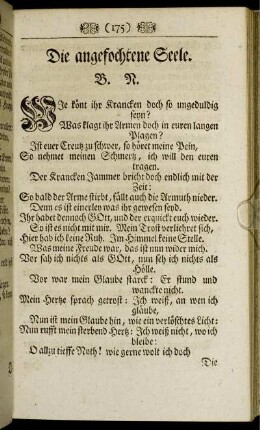 (175)
Die angefochtene Seele.
B. N.
WJe könt ihr Krancken doch so ungeduldig
seyn?
Was klagt ihr Armen doch in euren langen
Plagen?
Jst euer Creutz zu schwer, so höret meine Pein,
So nehmet meinen Schmertz, ich will den euren
tragen.
Der Krancken Jammer bricht doch endlich mit der
Zeit:
So bald der Arme stirbt, fällt auch die Armuth nieder.
Denn es ist einerley was ihr gewesen seyd.
Jhr habet dennoch GOtt, und der erquickt euch wieder.
So ist es nicht mit mir. Mein Trost verliehret sich,
Hier hab ich keine Ruh. Jm Himmel keine Stelle.
Was meine Freude war, das ist nun wider mich.
Vor sah ich nichts als GOtt, nun seh ich nichts als
Hölle.
Vor war mein Glaube starck: Er stund und
wanckte nicht.
Mein Hertze sprach getrost: Jch weiß, an wen ich
gläube,
Nun ist mein Glaube hin, wie ein verlöschtes Licht:
Nun rufft mein sterbend Hertz: Jch weiß nicht, wo ich
bleibe:
O allzu tieffe Noth! wie gerne wolt ich doch
Die